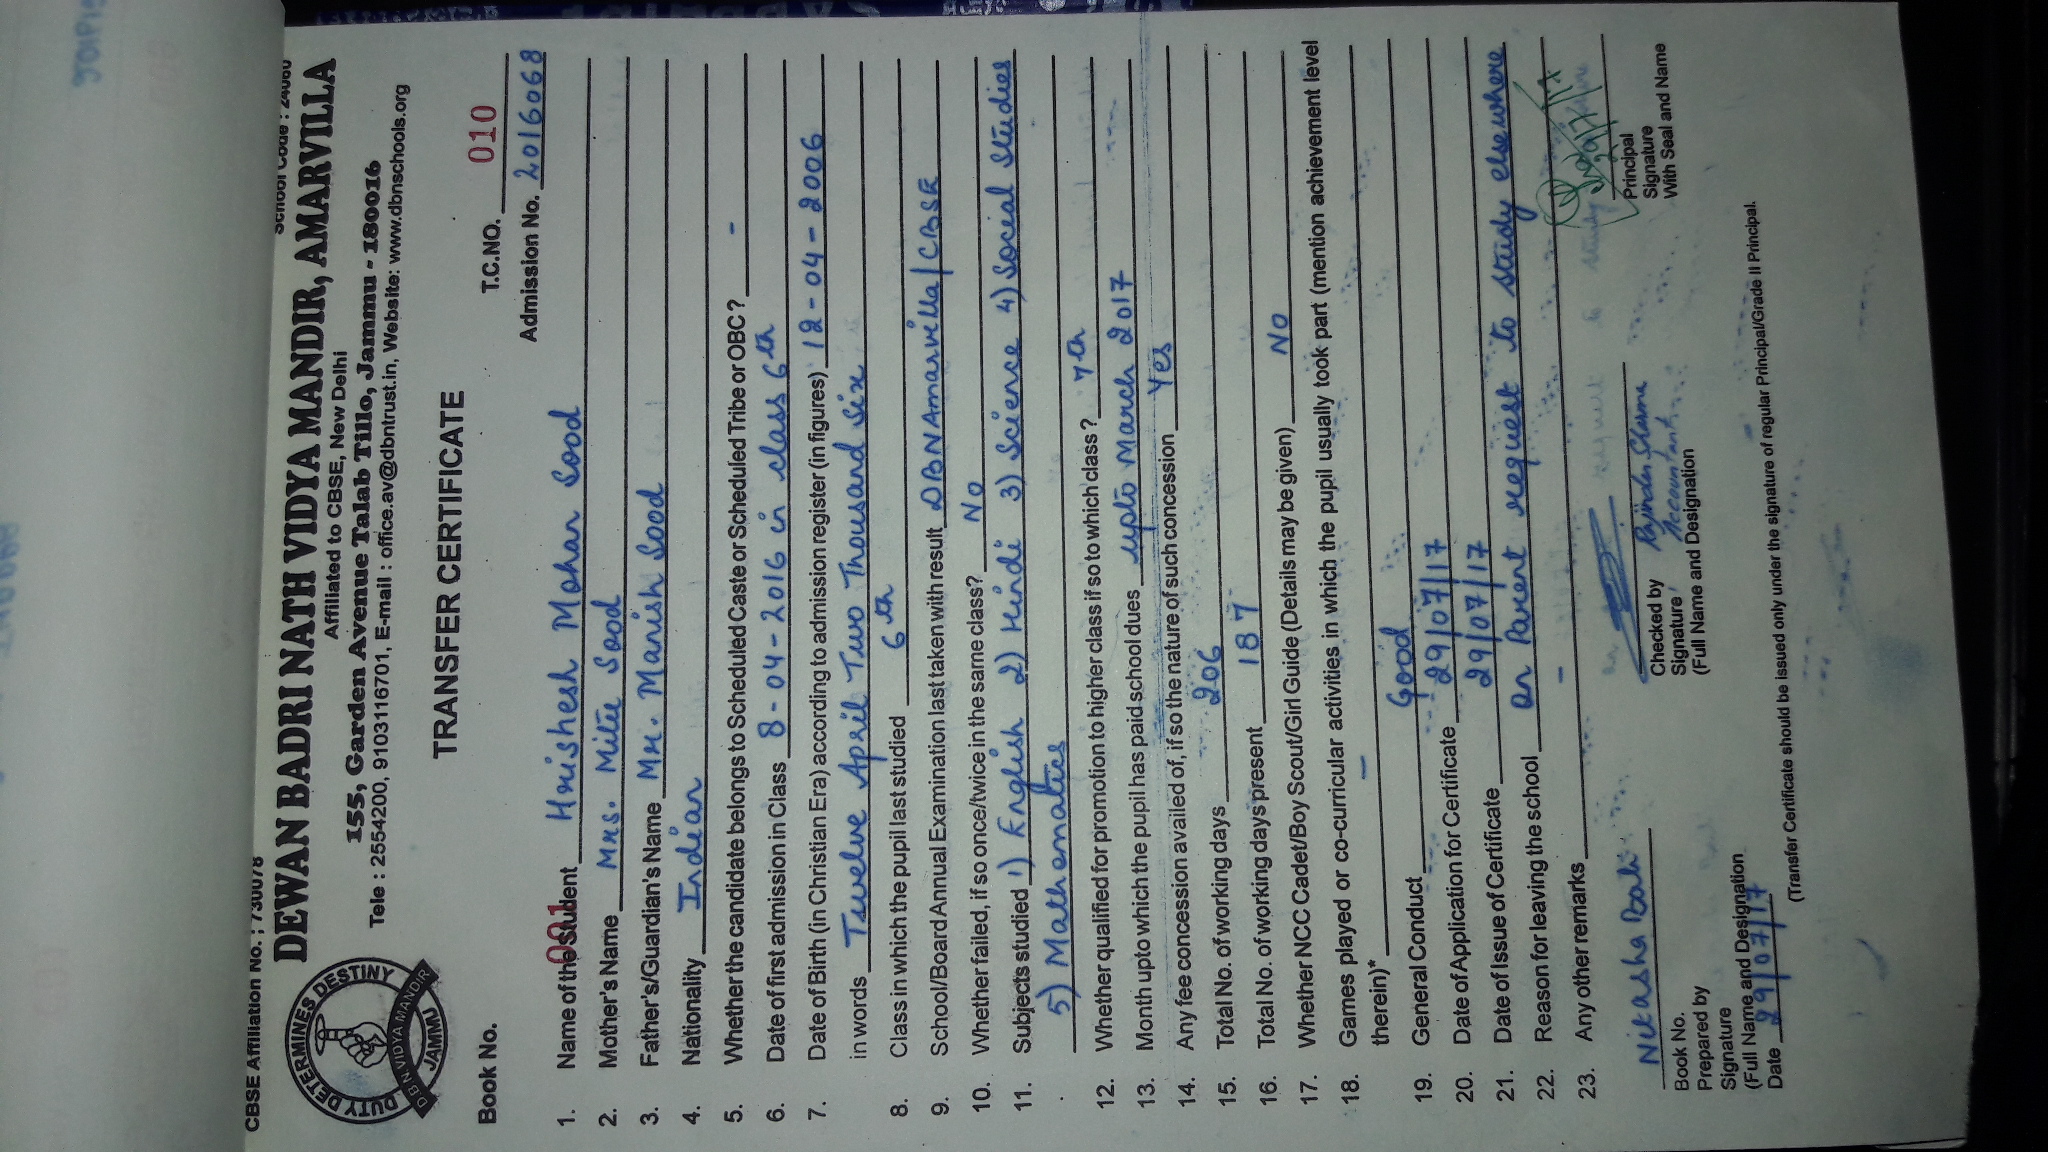 CBSE Affiliation No. : 730078 School Code : 24060
DEWAN BADRI NATH VIDYA MANDIR, AMARVILLA
Affiliated to CBSE, New Delhi
155, Garden Avenue Talab Tillo, Jammu - 180016
Tele : 2554200, 9103116701, E-mail : office.av@dbntrust.in, Website: www.dbnschools.org
DUTY DETERMINES DESTINY
DBN VIDYA MANDIR
JAMMU
TRANSFER CERTIFICATE
Book No. T.C.NO. 010
001
Admission No. 2016068
1. Name of the Student Hrishesh Mohan Sood
2. Mother's Name Mrs. Mitu Sood
3. Father's/Guardian's Name Mr. Manish Sood
4. Nationality Indian
5. Whether the candidate belongs to Scheduled Caste or Scheduled Tribe or OBC? -
6. Date of first admission in Class 8-04-2016 in class 6th
7. Date of Birth (in Christian Era) according to admission register (in figures) 12-04-2006
in words Twelve April Two Thousand Six
8. Class in which the pupil last studied 6th
9. School/Board Annual Examination last taken with result DBNAmarvilla/CBSE
10. Whether failed, if so once/twice in the same class? No
11. Subjects studied 1) English 2) Hindi 3) Science 4) Social studies
5) Mathematics
12. Whether qualified for promotion to higher class if so to which class? 7th
13. Month upto which the pupil has paid school dues upto March 2017
14. Any fee concession availed of, if so the nature of such concession Yes
15. Total No. of working days 206
16. Total No. of working days present 187
17. Whether NCC Cadet/Boy Scout/Girl Guide (Details may be given) No
18. Games played or co-curricular activities in which the pupil usually took part (mention achievement level
therein)* -
19. General Conduct Good
20. Date of Application for Certificate 29/07/17
21. Date of Issue of Certificate 29/07/17
22. Reason for leaving the school on Parent request to study elsewhere
23. Any other remarks -
Book No.
Prepared by
Signature
(Full Name and Designation
Date 29/07/17
Checked by
Signature
(Full Name and Designation)
Rajinder Sharma
Accountant
Principal
Signature
With Seal and Name
(Transfer Certificate should be issued only under the signature of regular Principal/Grade II Principal.